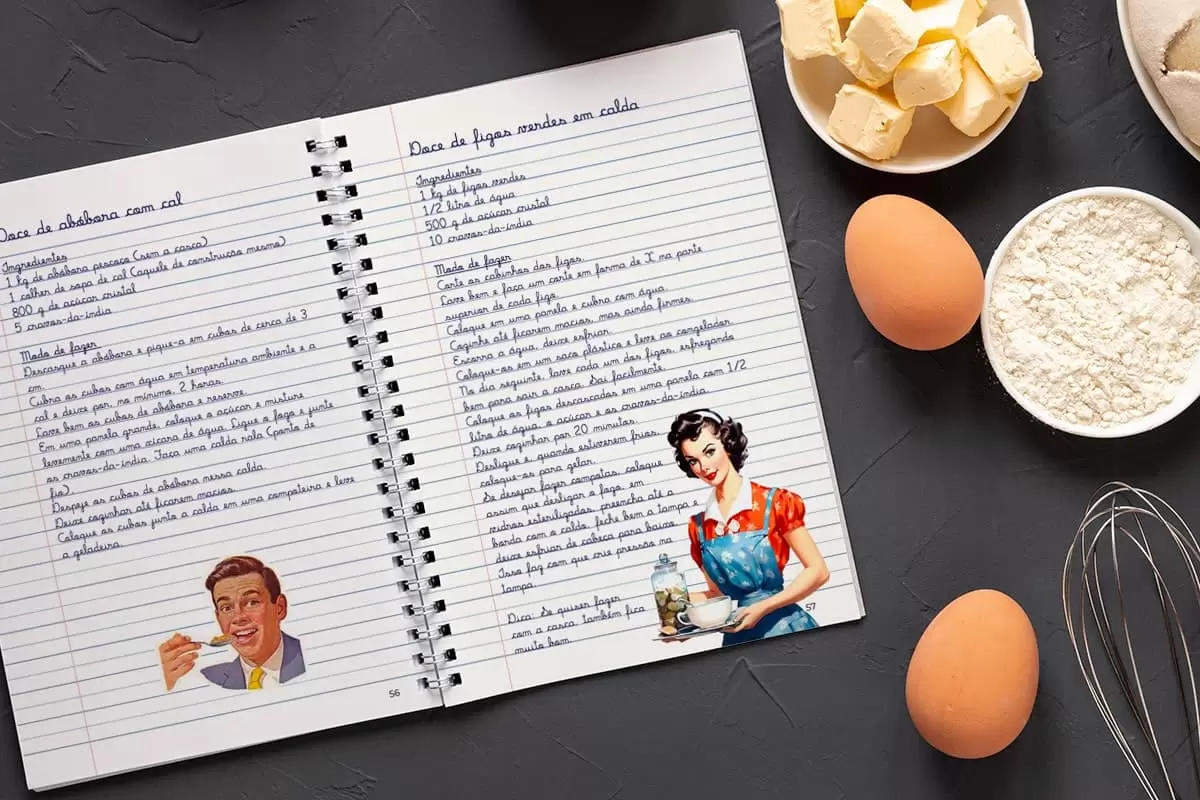 Doce de abóbora com cal
Ingredientes
1 kg de abóbora pescoço (sem a casca)
1 colher de sopa de cal (aquele de construção mesmo)
800 g de açúcar cristal
5 cravos-da-índia
Modo de fazer
Descasque a abóbora e pique-a em cubos de cerca de 3
cm.
Cubra os cubos com água em temperatura ambiente e a
cal e deixe por, no mínimo, 2 horas.
Lave bem os cubos de abóbora e reserve.
Em uma panela grande, coloque o açúcar e misture
levemente com uma xícara de água. Ligue o fogo e junte
os cravos-da-índia. Faça uma calda rala (ponto de
fio).
Despeje os cubos de abóbora nessa calda.
Deixe cozinhar até ficarem macios.
Coloque os cubos junto a calda em uma compoteira e leve
a geladeira.
56
Doce de figos verdes em calda
Ingredientes
1 kg de figos verdes
1/2 litro de água
500 g de açúcar cristal
10 cravos-da-índia
Modo de fazer
Corte os cabinhos dos figos.
Lave bem e faça um corte em forma de X na parte
superior de cada figo.
Coloque em uma panela e cubra com água.
Cozinhe até ficarem macios, mas ainda firmes.
Escorra a água, deixe esfriar.
Coloque-os em um saco plástico e leve ao congelador.
No dia seguinte, lave cada um dos figos, esfregando
bem para sair a casca. Sai facilmente.
Coloque os figos descascados em uma panela com 1/2
litro de água, o açúcar e os cravos-da-índia.
Deixe cozinhar por 20 minutos.
Desligue e, quando estiverem frios,
coloque-os para gelar.
Se desejar fazer compotas, coloque
assim que desligar o fogo, em
vidros esterilizados, preencha até a
borda com a calda, feche bem a tampa e
deixe esfriar de cabeça para baixo.
Isso faz com que crie pressão na
tampa.
Dica: Se quiser fazer
com a casca, também fica
muito bom.
57